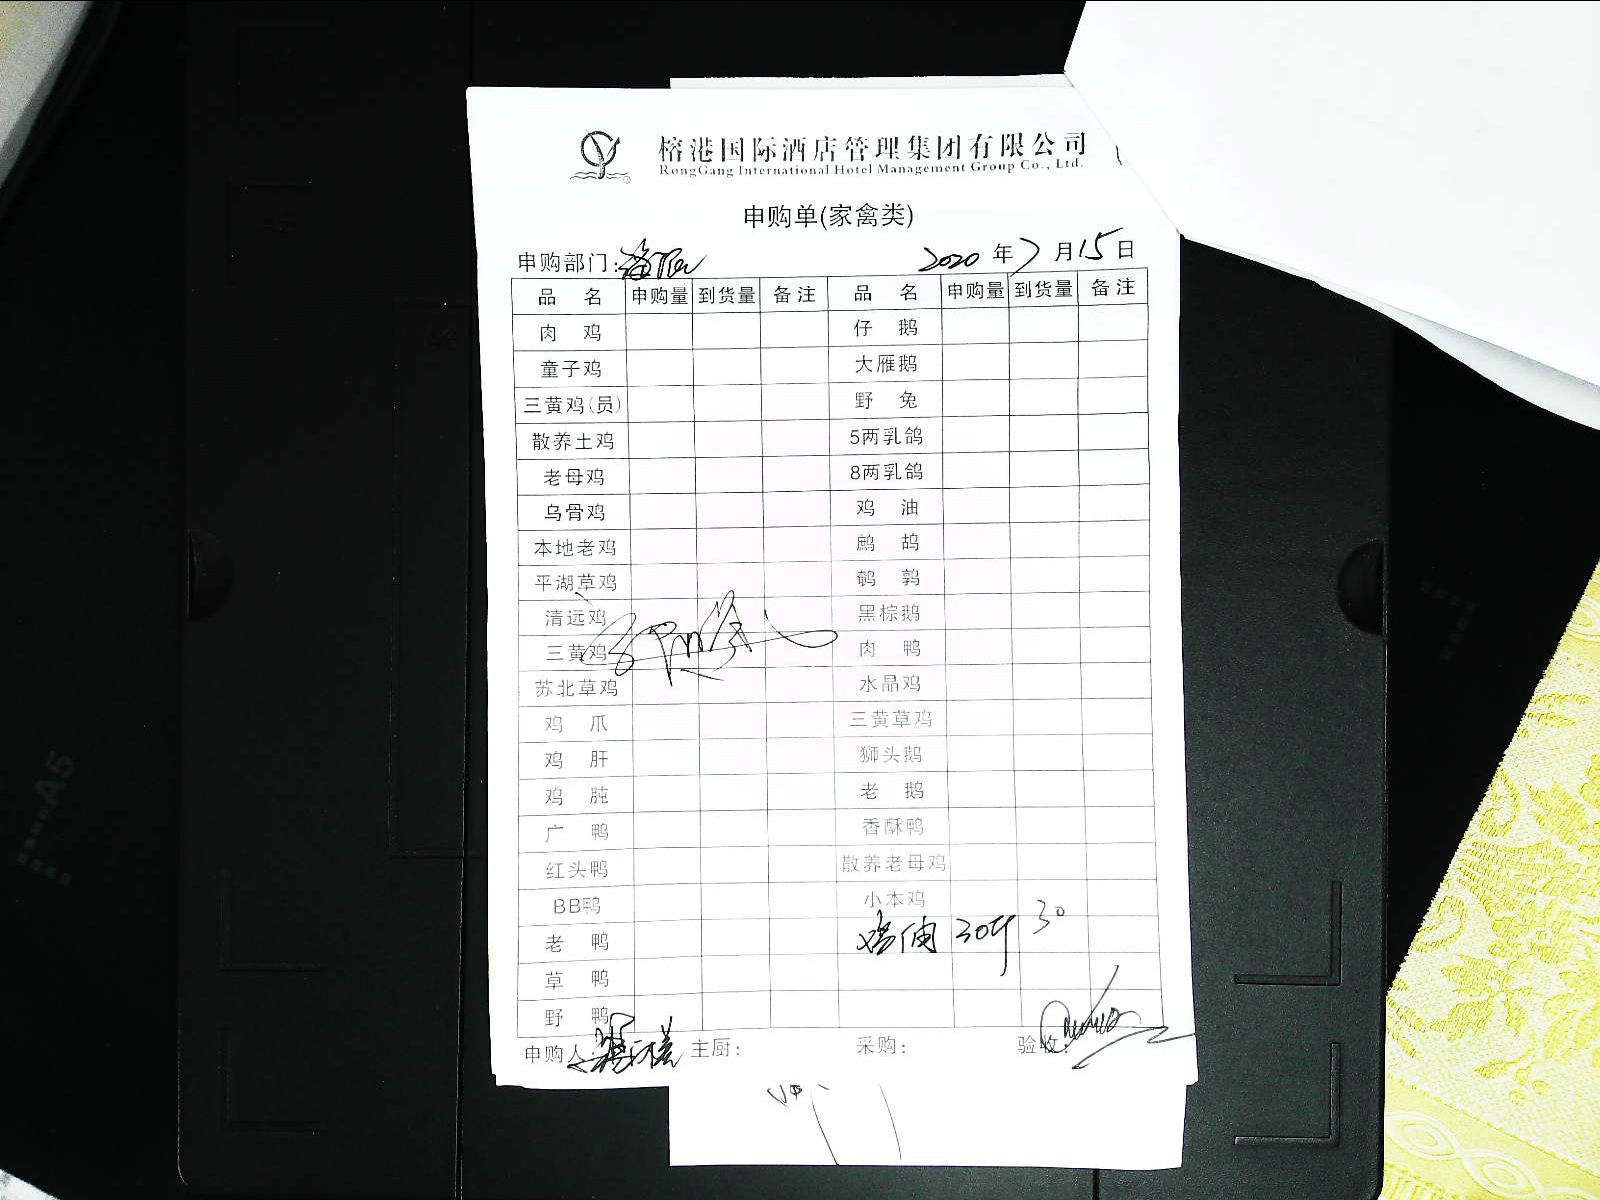 榕港国际酒店管理集团有限公司
RongGang International Hotel Management Group Co., Ltd.
申购单(家禽类)
申购部门:
2020 年 7 月 15 日
品 名 申购量 到货量 备注 品 名 申购量 到货量 备注
肉 鸡 仔 鹅
童子鸡 大雁鹅
三黄鸡(员) 野 兔
散养土鸡 5两乳鸽
老母鸡 8两乳鸽
乌骨鸡 鸡 油
本地老鸡 鹧 鸪
平湖草鸡 鹌 鹑
清远鸡 黑棕鹅
三黄鸡 肉 鸭
苏北草鸡 水晶鸡
鸡 爪 三黄草鸡
鸡 肝 狮头鹅
鸡 肫 老 鹅
广 鸭 香酥鸭
红头鸭 散养老母鸡
BB鸭 小本鸡
老 鸭 30 30
草 鸭
野 鸭
申购人 主厨: 采购: 验收:
A5